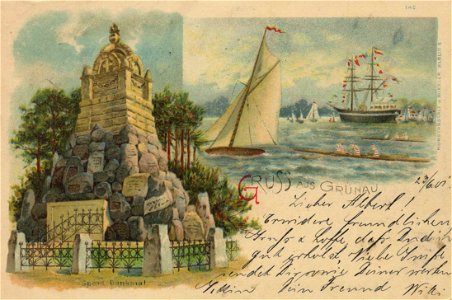 GRUSS AUS GRÜNAU
Sport Denkmal
Lieber Albert!
Erwidere freundlichen
Gruss & hoffe, dass Du dich
gut erholst. Viele Grüsse
sendet Dir sowie Deiner werten
Dein Freund Willi